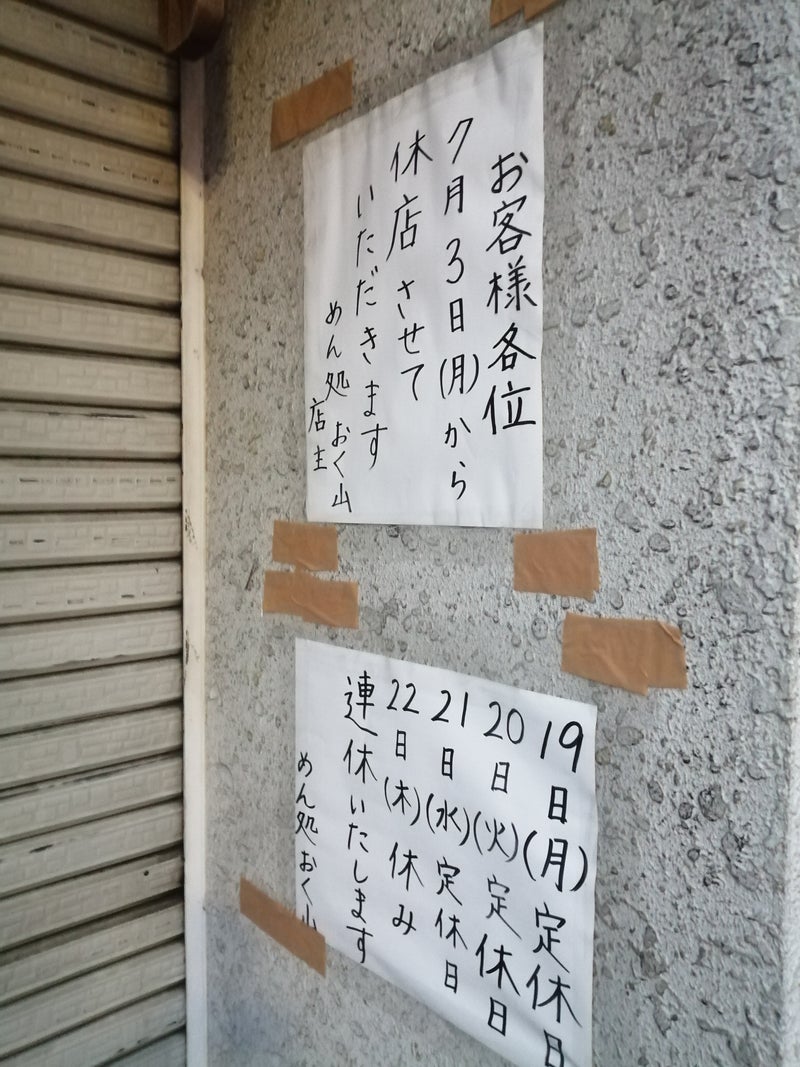 お客様各位
7月3日(月)から
休店させて
いただきます
めん処おく山
店主
19日(月)定休日
20日(火)定休日
21日(水)定休日
22日(木)休み
連休いたします
めん処おく山